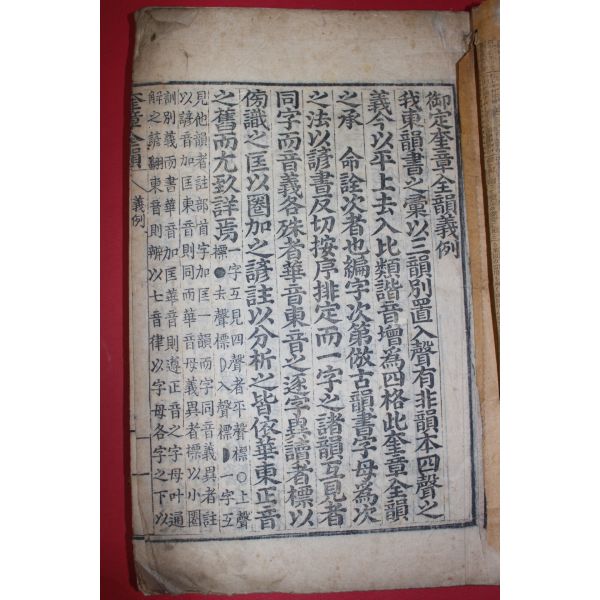 御定奎章全韻義例
我東韻書之彙以三韻別置入聲有非韻本四聲之
義今以平上去入比類諧音增為四格此奎章全韻
之承　命詮次者也編字次第倣古韻書字母為次
之法以諺書反切按序排定而一字之諸韻互見者
同字而音義各殊者華音東音之逐字異讀者標以
傍識之匡以圈加之諺註以分析之皆依華東正音
之舊而尤致詳焉一字互見四聲者平聲標○上聲
標●去聲標D入聲標◗一字互
見他韻者註部首字加匡一韻而字同音義異者註
以諺音加匡東音則同而華音母義異者標以小圈
訓別義而書華音加匡華音則遵正音之字母叶通
解之諺翻東音則辨以七音律以字母各字之下以
奎章全韻　義例